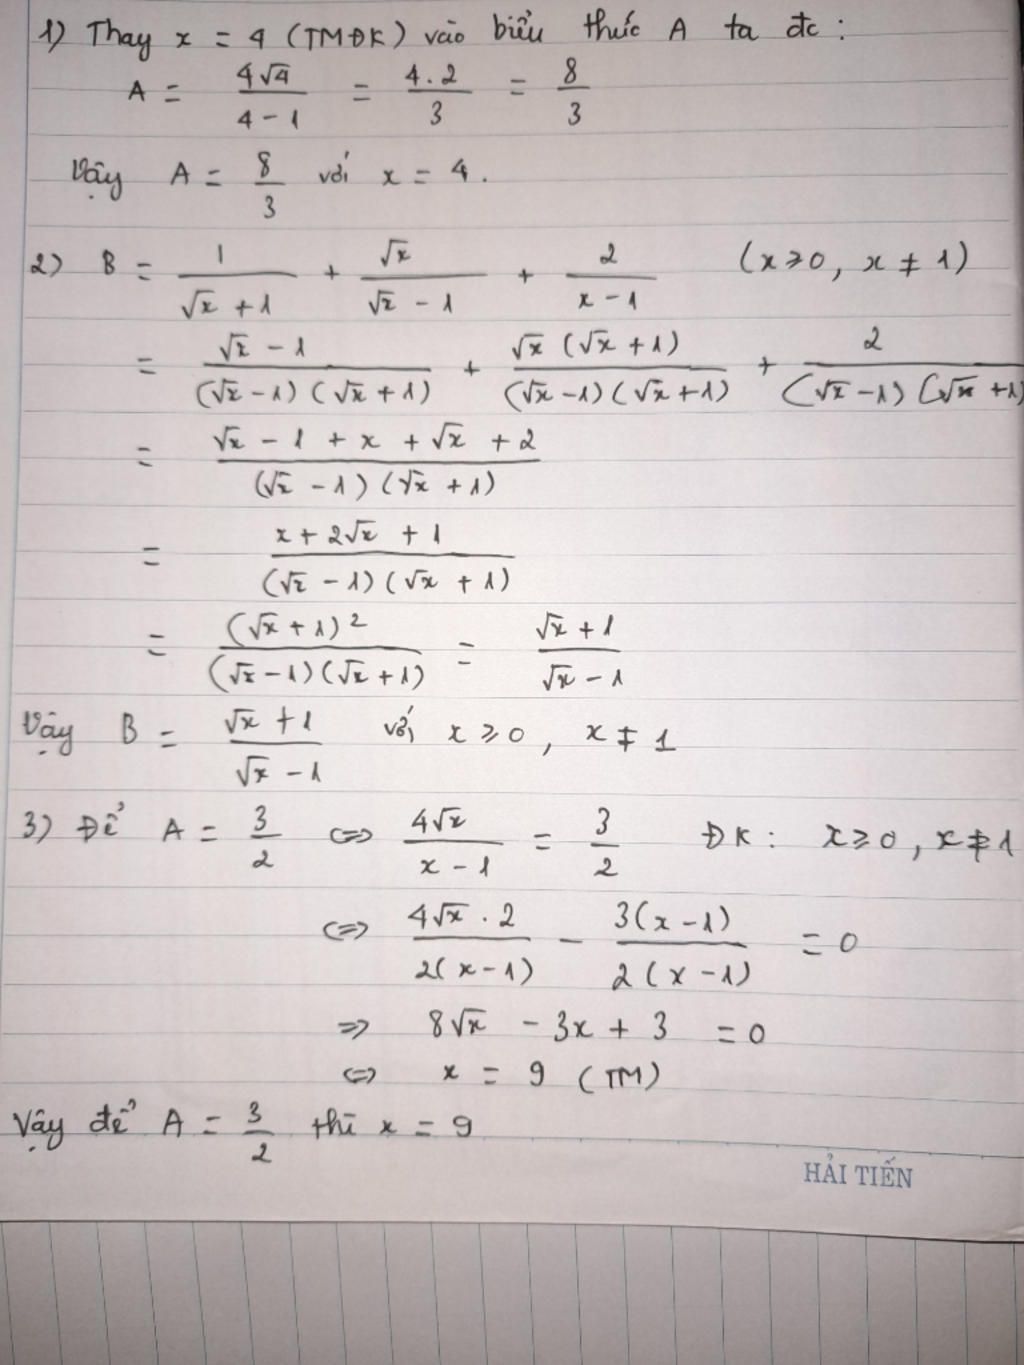 1) Thay x = 4 (TMĐK) vào biểu thức A ta đc :
A = 4√4 / 4 - 1 = 4 . 2 / 3 = 8 / 3
Vậy A = 8 / 3 với x = 4 .
2) B = 1 / √x + 1 + √x / √x - 1 + 2 / x - 1 (x ≥ 0, x ≠ 1)
= √x - 1 / (√x - 1) (√x + 1) + √x (√x + 1) / (√x - 1) (√x + 1) + 2 / (√x - 1) (√x + 1)
= √x - 1 + x + √x + 2 / (√x - 1) (√x + 1)
= x + 2√x + 1 / (√x - 1) (√x + 1)
= (√x + 1)² / (√x - 1) (√x + 1) = √x + 1 / √x - 1
Vậy B = √x + 1 / √x - 1 với x ≥ 0 , x ≠ 1
3) Để A = 3 / 2 <=> 4√x / x - 1 = 3 / 2 ĐK : x ≥ 0 , x ≠ 1
<=> 4√x . 2 / 2( x - 1) - 3(x - 1) / 2 ( x - 1) = 0
=> 8√x - 3x + 3 = 0
<=> x = 9 (TM)
Vậy để A = 3 / 2 thì x = 9
HẢI TIẾN